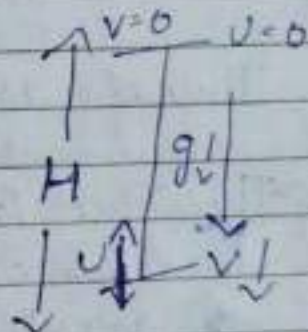 V=0 U=0
H g↓
U V↓